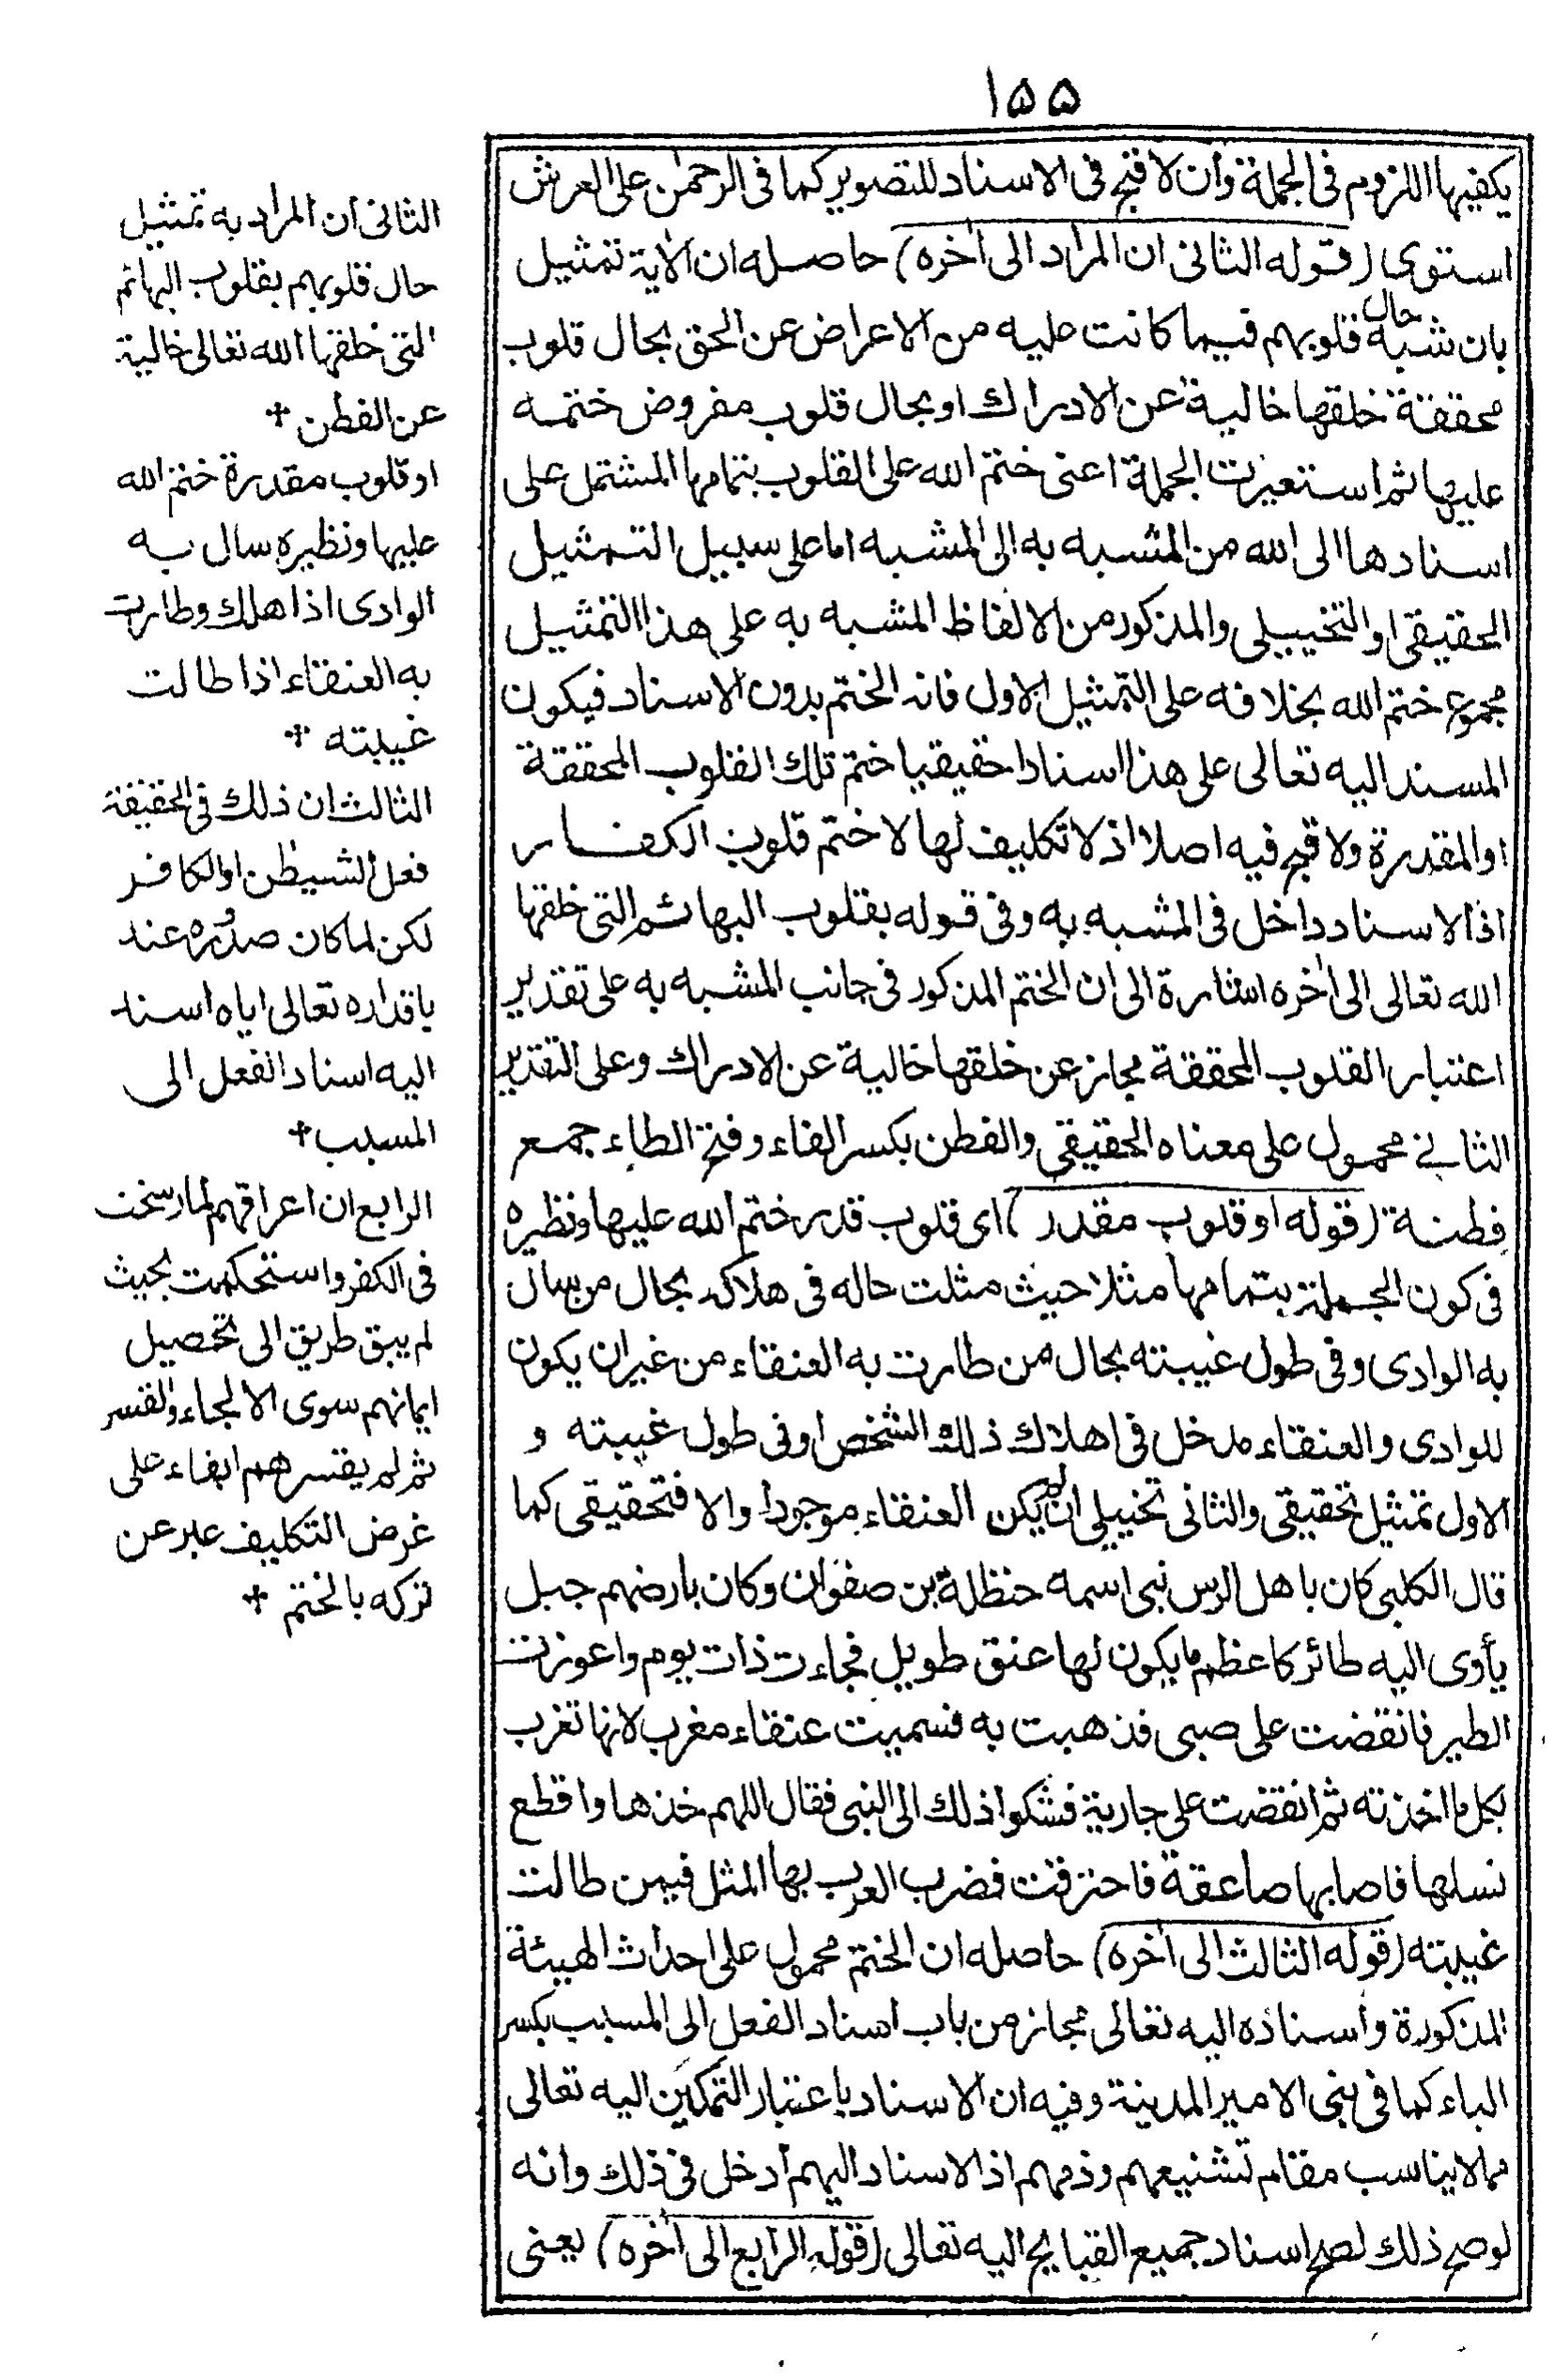 ١٥٥
يكفيها اللزوم فى الجملة وان لا قبح فى الاسناد للتصوير كما فى الرحمٰن على العرش
استوى (قوله الثانى ان المراد الى اٰخره) حاصله ان الاٰية تمثيل
بان شبه حال قلوبهم فيما كانت عليه من الاعراض عن الحق بحال قلوب
محققة خلقها خالية عن الادراك او بحال قلوب مفروض ختمه
عليها ثم استعيرت الجملة اعنى ختم الله على القلوب بتمامها المشتمل على
اسنادها الى الله من المشبه به الى المشبه اما على سبيل التمثيل
الحقيقى او التخييلى والمذكور من الالفاظ المشبه به على هذا التمثيل
مجموع ختم الله بخلافه على التمثيل الاول فانه الختم بدون الاسناد فيكون
المسند اليه تعالى على هذا اسنادا حقيقيا ختم تلك القلوب المحققة
او المقدرة ولا قبح فيه اصلا اذ لا تكليف لها لا ختم قلوب الكفار
اذ الاسناد داخل فى المشبه به وفى قوله بقلوب البهائم التى خلقها
الله تعالى الى اٰخره اشارة الى ان الختم المذكور فى جانب المشبه به على تقدير
اعتبار القلوب المحققة مجاز عن خلقها خالية عن الادراك وعلى التقدير
الثانى محمول على معناه الحقيقى والفطن بكسر الفاء وفتح الطاء جمع
فطنة (قوله او قلوب مقدر) اى قلوب قدر ختم الله عليها ونظيره
فى كون الجملة بتمامها مثلا حيث مثلت حاله فى هلاكه بحال من سال
به الوادى وفى طول غيبته بحال من طارت به العنقاء من غير ان يكون
للوادى والعنقاء مدخل فى اهلاك ذلك الشخص او فى طول غيبته و
الاول تمثيل تحقيقى والثانى تخييلى ان لم يكن العنقاء موجودا والا فتحقيقى كما
قال الكلبى كان باهل الرس نبى اسمه حنظلة بن صفوان وكان بارضهم جبل
يأوى اليه طائر كاعظم ما يكون لها عنق طويل فجاءت ذات يوم واعوزت
الطير فانقضت على صبى فذهبت به فسميت عنقاء مغرب لانها تغرب
بكل ما اخذته ثم انقضت على جارية فشكوا ذلك الى النبى فقال اللهم خذها واقطع
نسلها فاصابها صاعقة فاحترقت فضرب العرب بها المثل فيمن طالت
غيبته (قوله الثالث الى اٰخره) حاصله ان الختم محمول على احداث الهيئة
المذكورة واسناده اليه تعالى مجاز من باب اسناد الفعل الى المسبب بكسر
الباء كما فى بنى الامير المدينة وفيه ان الاسناد باعتبار التمكين اليه تعالى
مما لا يناسب مقام تشنيعهم وذمهم اذ الاسناد اليهم أدخل فى ذلك وانه
لو صح ذلك لصح اسناد جميع القبايح اليه تعالى (قوله الرابع الى اٰخره) يعنى
الثانى ان المراد به تمثيل
حال قلوبهم بقلوب البهائم
التى خلقها الله تعالى خالية
عن الفطن +
او قلوب مقدرة ختم الله
عليها ونظيره سال به
الوادى اذا هلك وطارت
به العنقاء اذا طالت
غيبته +
الثالث ان ذلك فى الحقيقة
فعل الشيطٰن او الكافر
لكن لما كان صدوره عند
باقداره تعالى اياه اسند
اليه اسناد الفعل الى
المسبب +
الرابع ان اعراقهم لما رسخت
فى الكفر واستحكمت بحيث
لم يبق طريق الى تحصيل
ايمانهم سوى الالجاء والقسر
ثم لم يقسرهم ابقاء على
غرض التكليف عبر عن
تركه بالختم +